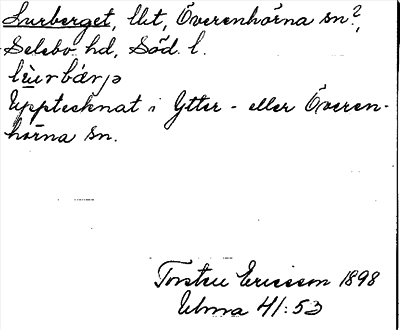 Lurberget, llit, Överenhörna sn?,
Selebo hd, Söd. l.
Upptecknat i Ytter- eller Överen-
hörna sn.
Torsten Ericsson 1898
Ulma 41:53